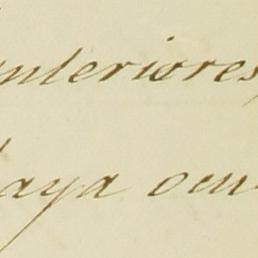 anteriores,
haya ocu